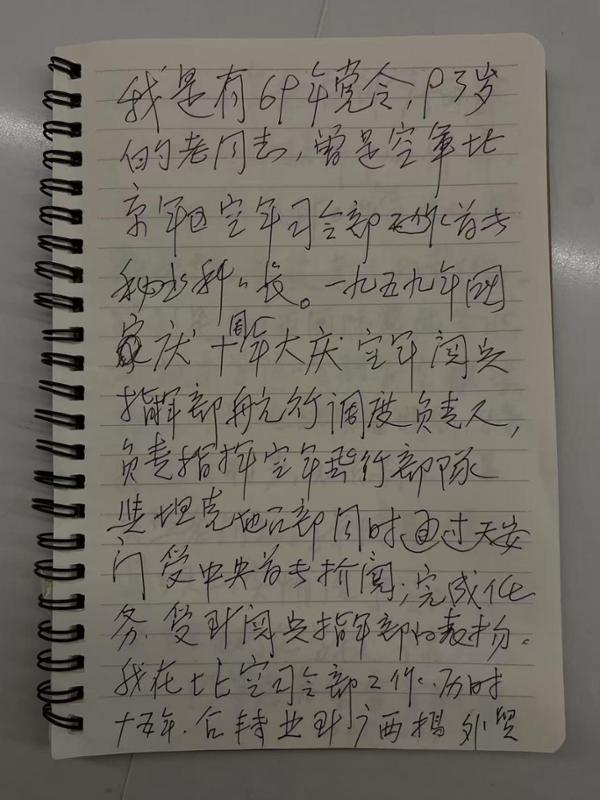 我是有69年党令,93岁
的老同志,曾是空军北
京军区空军司令部 首长
秘书科科长。一九五九年国
庆十周年大庆空军阅兵
指挥部航行调度负责人,
负责指挥空军飞行部队
与坦克炮兵部同时通过天安
门受中央首长检阅;完成任
务.受到阅兵指挥部的表扬。
我在北空司令部工作.历时
十五年.后转业到广西搞外贸